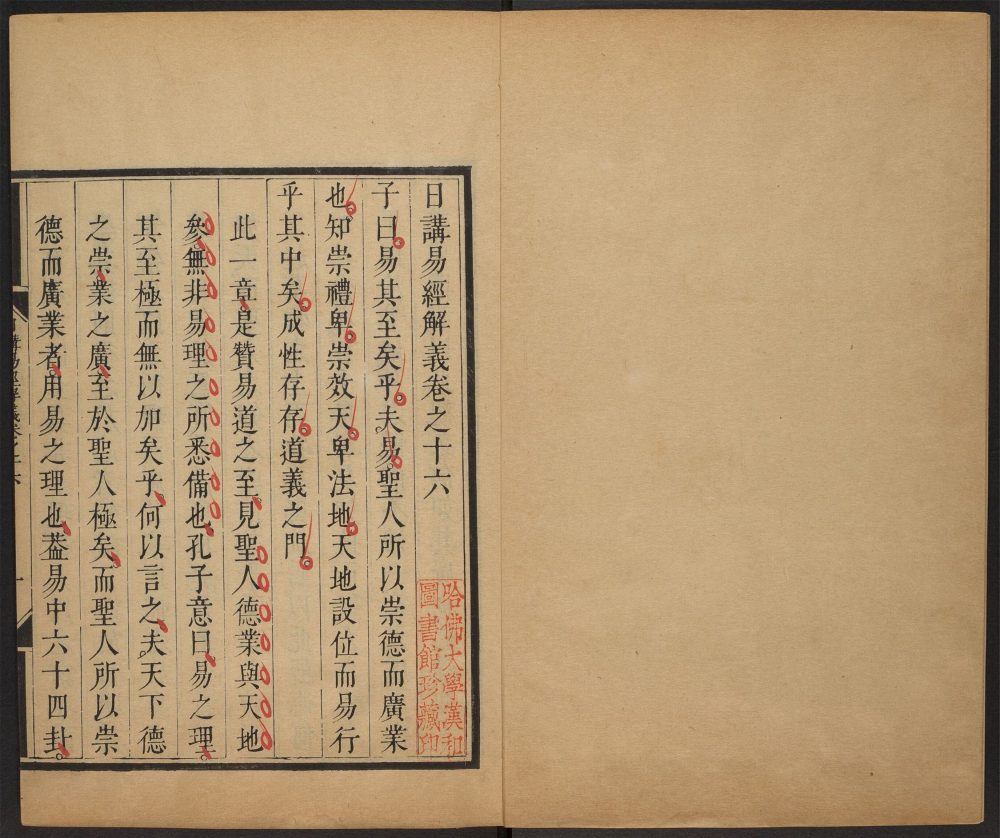 日講易經解義卷之十六
子曰易其至矣乎夫易聖人所以崇德而廣業
也知崇禮卑崇效天卑法地天地設位而易行
乎其中矣成性存存道義之門
此一章是贊易道之至見聖人德業與天地
參無非易理之所悉備也孔子意曰易之理
其至極而無以加矣乎何以言之夫天下德
之崇業之廣至於聖人極矣而聖人所以崇
德而廣業者用易之理也葢易中六十四卦
哈佛大學漢和
圖書館珍藏印